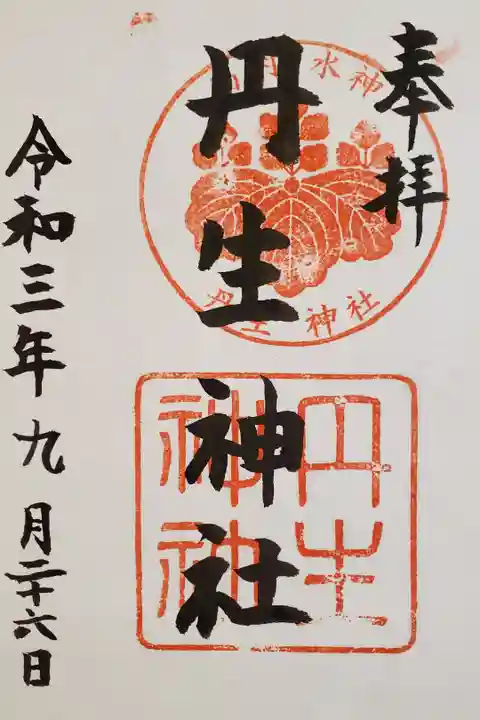 奉拝
丹生神社
令和三年九月二十六日
水神
丹生神社
丹生